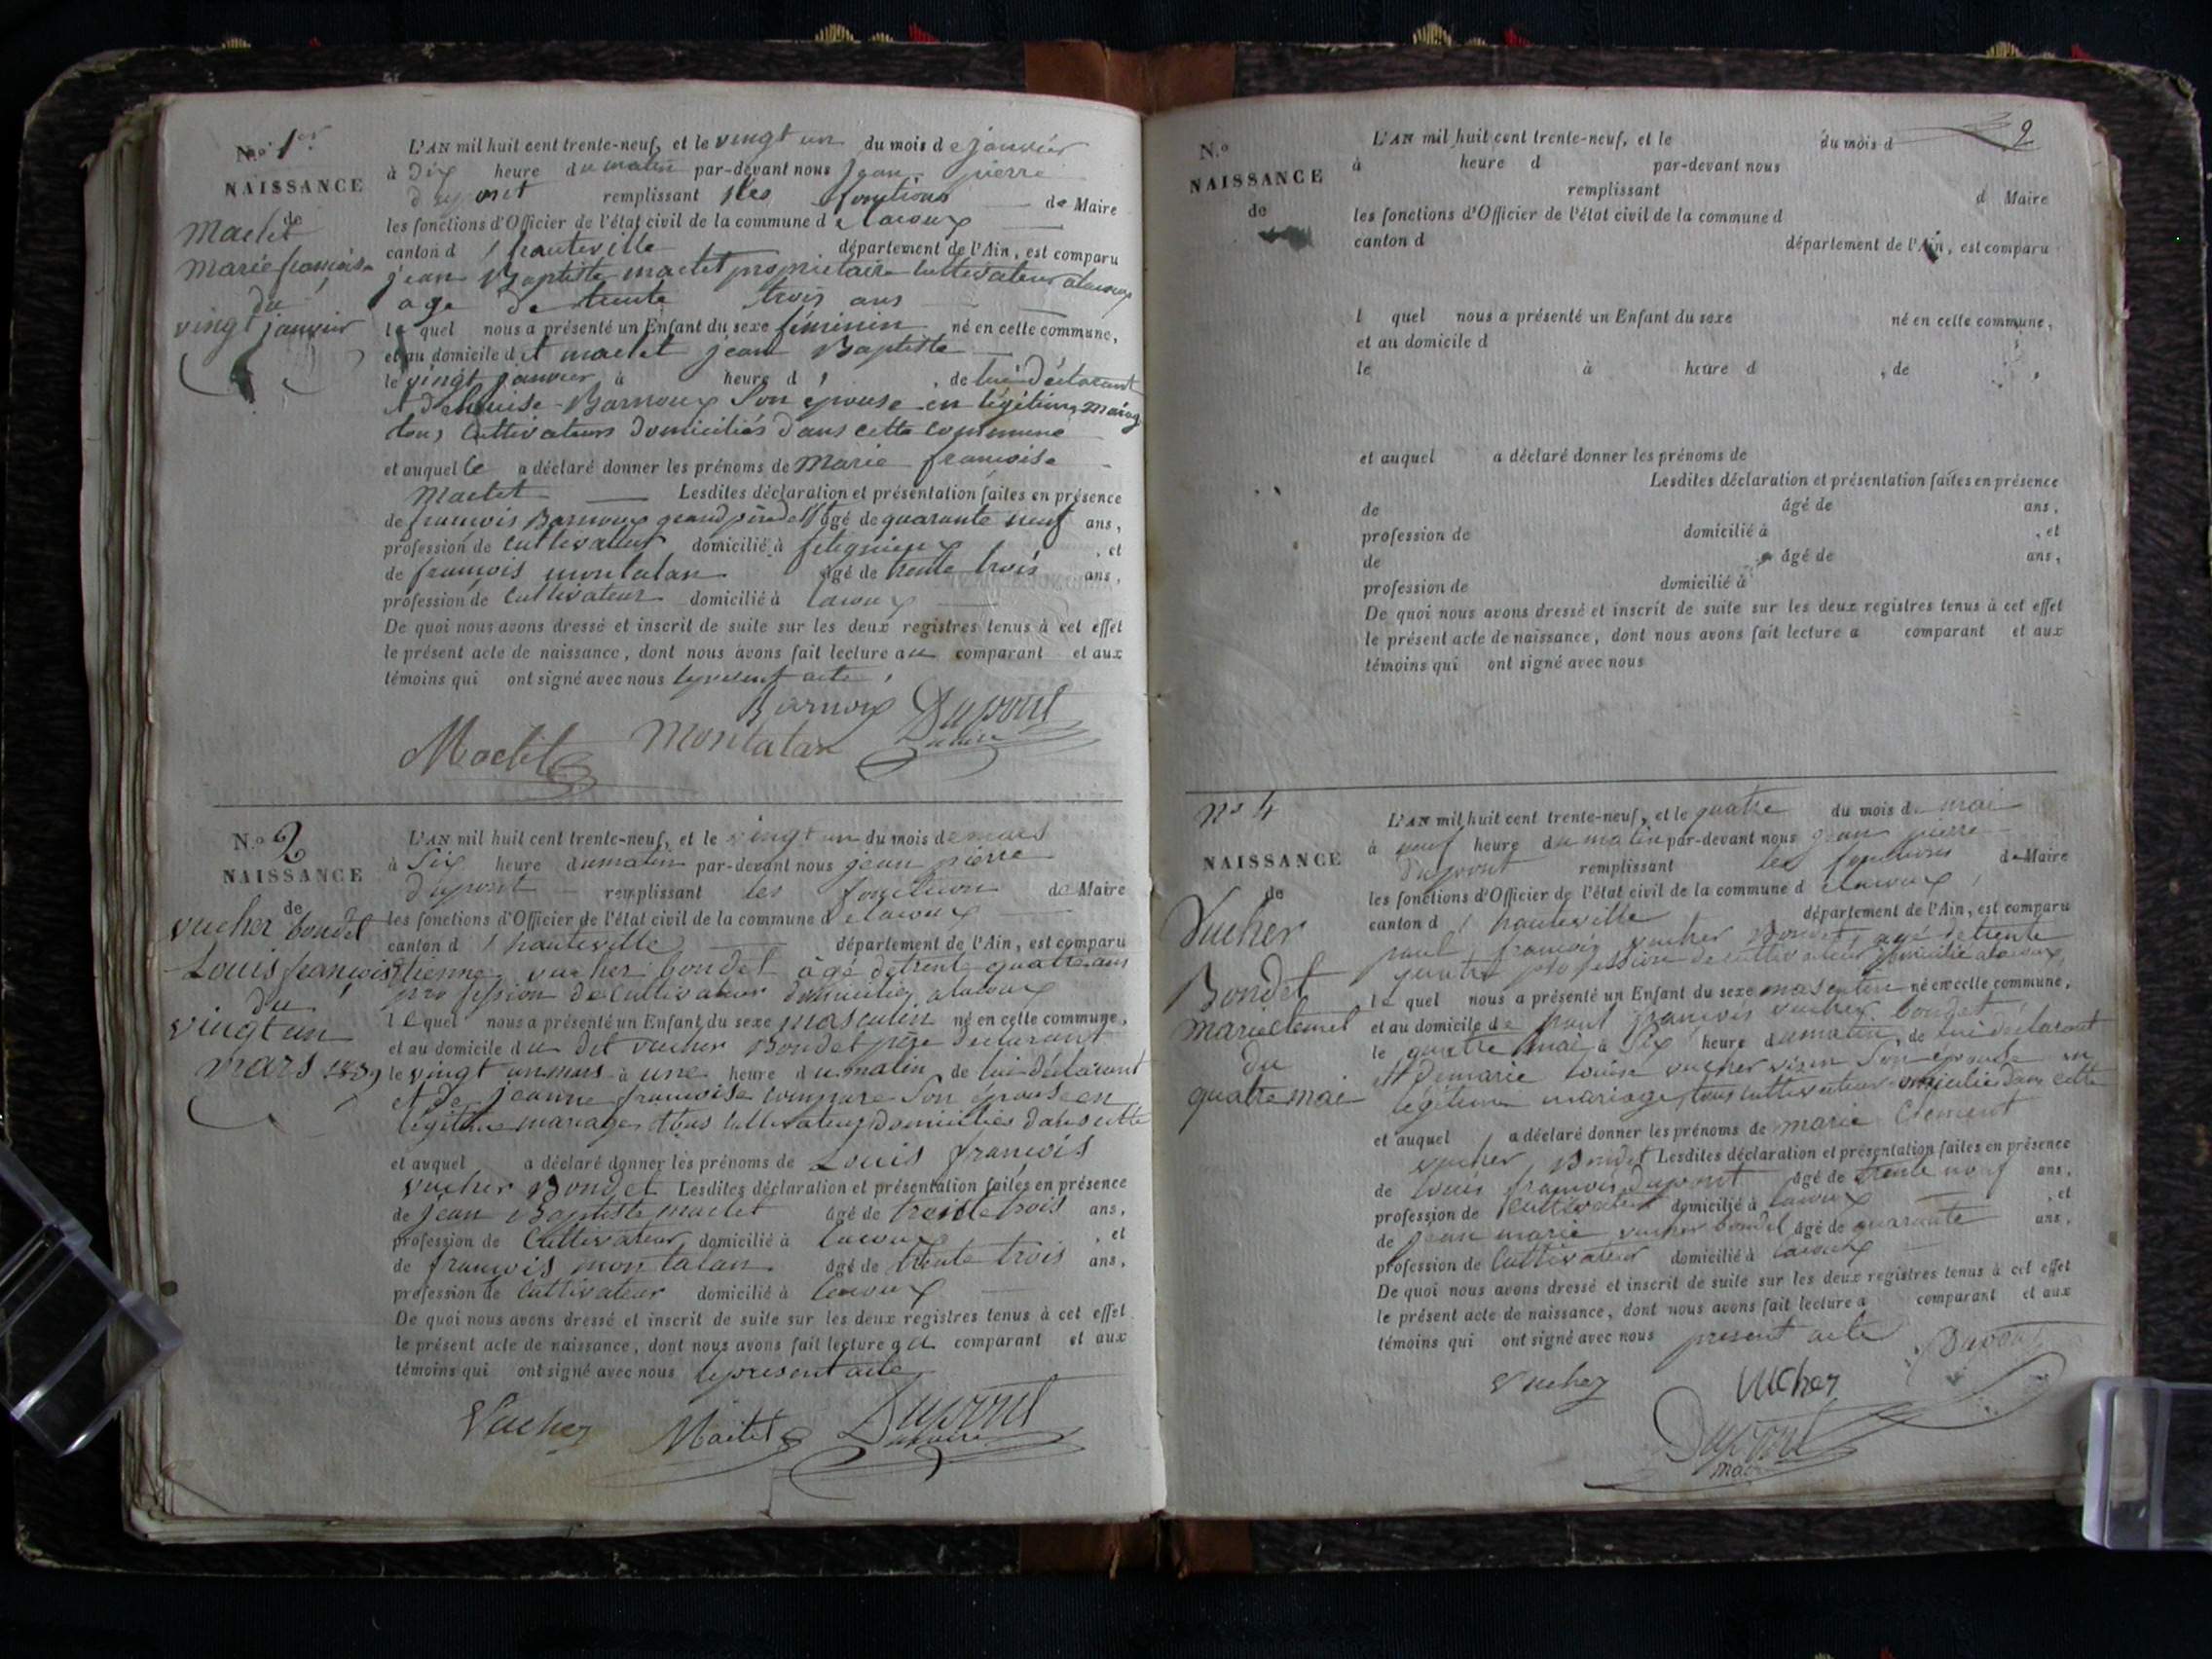 N.o 1er
NAISSANCE
de
Maclet
Marie françoise
du
vingt janvier
L'AN mil huit cent trente-neuf, et le vingt un du mois de janvier
à Dix heure du matin par-devant nous Jean pierre
dupont remplissant les fonctions de Maire
les fonctions d'Officier de l'état civil de la commune de lacoux
canton d'hauteville département de l'Ain, est comparu
jean Baptiste maclet propriétaire cultivateur alacoux
age de trente trois ans
le quel nous a présenté un Enfant du sexe féminin né en cette commune,
et au domicile d maclet jean Baptiste
le vingt janvier à heure d , de lui déclarant
et de louise Barnoux Son epouse en légitime mariag
tous Cultivateurs domiciliés dans cette commune
et auquel le a déclaré donner les prénoms de Marie françoise
Maclet Lesdites déclaration et présentation faites en présence
de françois Barnoux grand père âgé de quarante neuf ans,
profession de Cultivateur domicilié à , et
de françois montalan âgé de trente trois ans,
profession de Cultivateur domicilié à lacoux
De quoi nous avons dressé et inscrit de suite sur les deux registres tenus à cet effet
le présent acte de naissance, dont nous avons fait lecture au comparant et aux
témoins qui ont signé avec nous le present acte
Barnoux Dupont
maire
Maclet Montalan
N.o 2
NAISSANCE
de
vucher bondet
Louis françois
du
vingt un
mars 1839
L'AN mil huit cent trente-neuf, et le vingt un du mois de mars
à Six heure du matin par-devant nous jean pierre
dupont remplissant les fonction de Maire
les fonctions d'Officier de l'état civil de la commune de lacoux
canton d'hauteville département de l'Ain, est comparu
Etienne vucher bondet âgé de trente quatre ans
profession de Cultivateur domicilié alacoux
le quel nous a présenté un Enfant du sexe masculin né en cette commune,
et au domicile du dit vucher Bondet père déclarant
le vingt un mars à une heure du matin, de lui déclarant
et de jeanne françoise Son épouse en
légitime mariage tous cultivateurs domiciliés dans cette
et auquel a déclaré donner les prénoms de Louis françois
vucher Bondet Lesdites déclaration et présentation faites en présence
de jean Baptiste maclet âgé de trente trois ans,
profession de Cultivateur domicilié à lacoux , et
de françois montalan âgé de trente trois ans,
profession de Cultivateur domicilié à lacoux
De quoi nous avons dressé et inscrit de suite sur les deux registres tenus à cet effet
le présent acte de naissance, dont nous avons fait lecture au comparant et aux
témoins qui ont signé avec nous le present acte
Vucher Maclet Dupont
maire
2
N.o
NAISSANCE
de
L'AN mil huit cent trente-neuf, et le du mois d
à heure d par-devant nous
remplissant d Maire
les fonctions d'Officier de l'état civil de la commune d
canton d département de l'Ain, est comparu
l quel nous a présenté un Enfant du sexe né en cette commune,
et au domicile d
le à heure d , de ,
et auquel a déclaré donner les prénoms de
Lesdites déclaration et présentation faites en présence
de âgé de ans,
profession de domicilié à , et
de âgé de ans,
profession de domicilié à
De quoi nous avons dressé et inscrit de suite sur les deux registres tenus à cet effet
le présent acte de naissance, dont nous avons fait lecture a comparant et aux
témoins qui ont signé avec nous
No 4
NAISSANCE
de
Vucher
Bondet
marie clement
du
quatre mai
L'AN mil huit cent trente-neuf, et le quatre du mois de mai
à neuf heure du matin par-devant nous jean pierre
dupont remplissant les fonctions de Maire
les fonctions d'Officier de l'état civil de la commune d elacoux
canton d'hauteville département de l'Ain, est comparu
paul françois vucher Bondet, agé de trente
quatre profession de cultivateur domicilié alacoux
le quel nous a présenté un Enfant du sexe masculin né en cette commune,
et au domicile de paul françois vucher bondet
le quatre mai à Six heure du matin, de lui déclarant
et de marie louise vucher Son épouse en
légitime mariage, tous cultivateurs domiciliés dans cette
et auquel a déclaré donner les prénoms de marie Clement
vucher Bondet Lesdites déclaration et présentation faites en présence
de louis françois dupont âgé de trente neuf ans,
profession de Cultivateur domicilié à lacoux , et
de jean marie vucher bondet âgé de quarante ans,
profession de Cultivateur domicilié à lacoux
De quoi nous avons dressé et inscrit de suite sur les deux registres tenus à cet effet
le présent acte de naissance, dont nous avons fait lecture a comparant et aux
témoins qui ont signé avec nous present acte
Dupont
Vucher Vucher
Dupont
maire